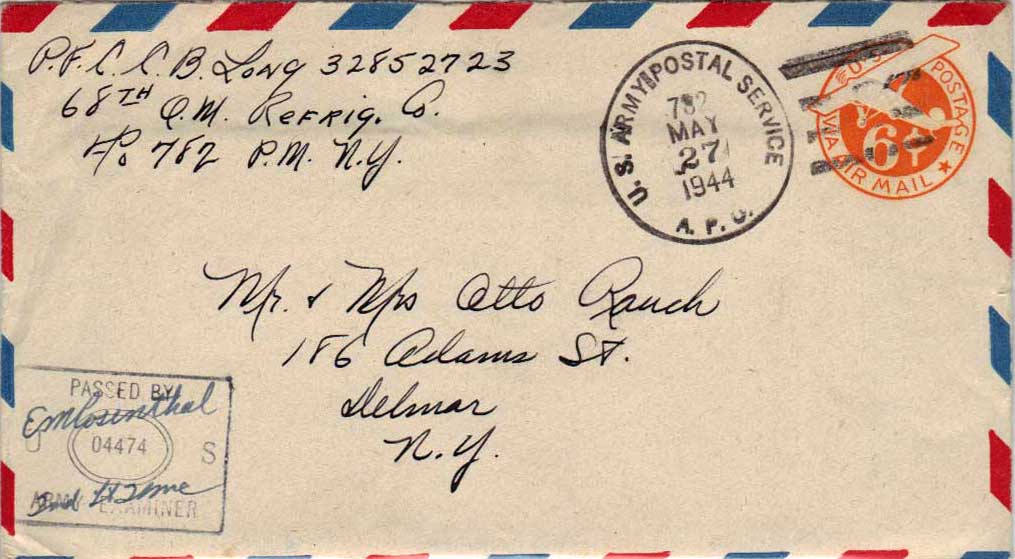 P.F.C. C. B. Long 32852723
68TH Q.M. Refrig. Co.
APO 782 P.M. N.Y.
U.S. ARMY POSTAL SERVICE
782
MAY
27
1944
A. P. O.
U.S. POSTAGE
VIA AIR MAIL
6¢
Mr. & Mrs Otto Rauch
186 Adams St.
Delmar
N.Y.
PASSED BY
EM Rosenthal
04474
U S
2nd Lt
ARMY EXAMINER